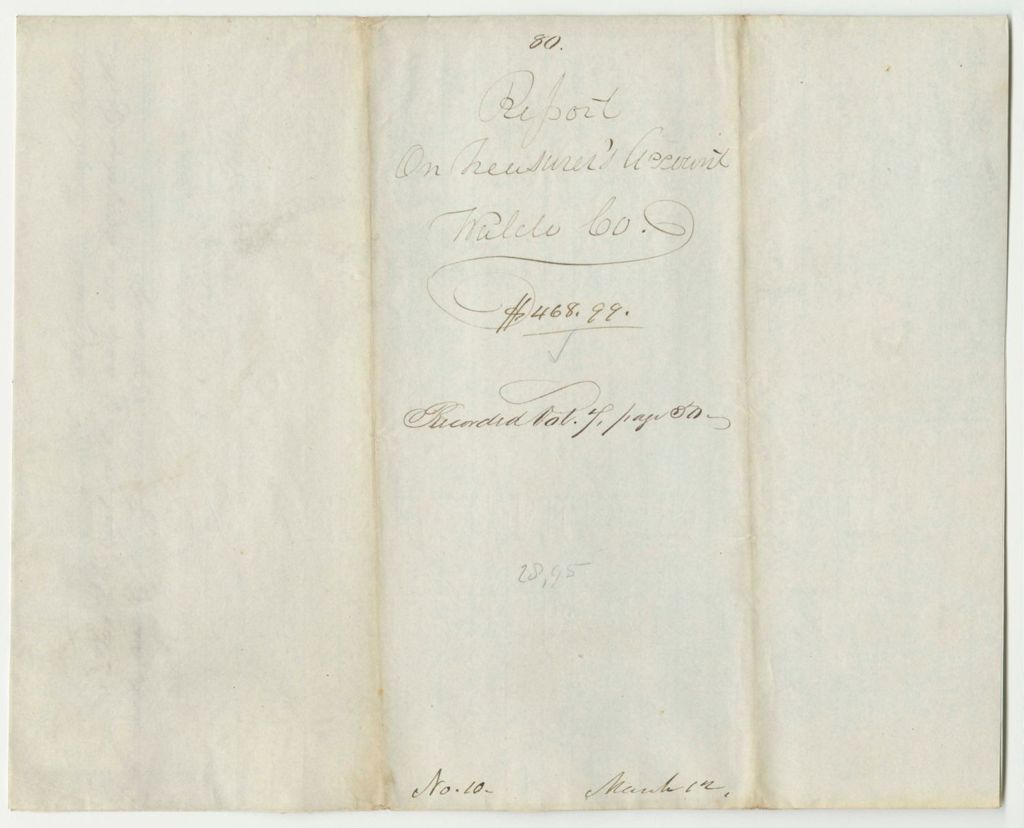 80.
Report
On Treasurer's Account
Waldo Co.
$468.99.
Recorded Vol. 7, page 80
28,95
No. 10- March 12,